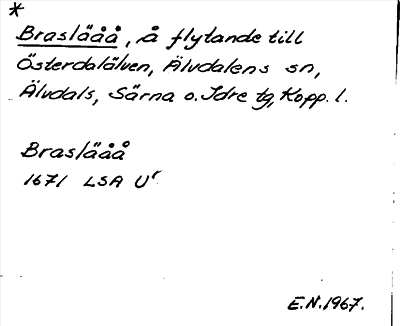 *
Braslääå, å flytande till
Österdalälven, Älvdalens sn,
Älvdals, Särna o. Idre tg, Kopp. l.
Braslääå
1671 LSA Ur
E.N. 1967.